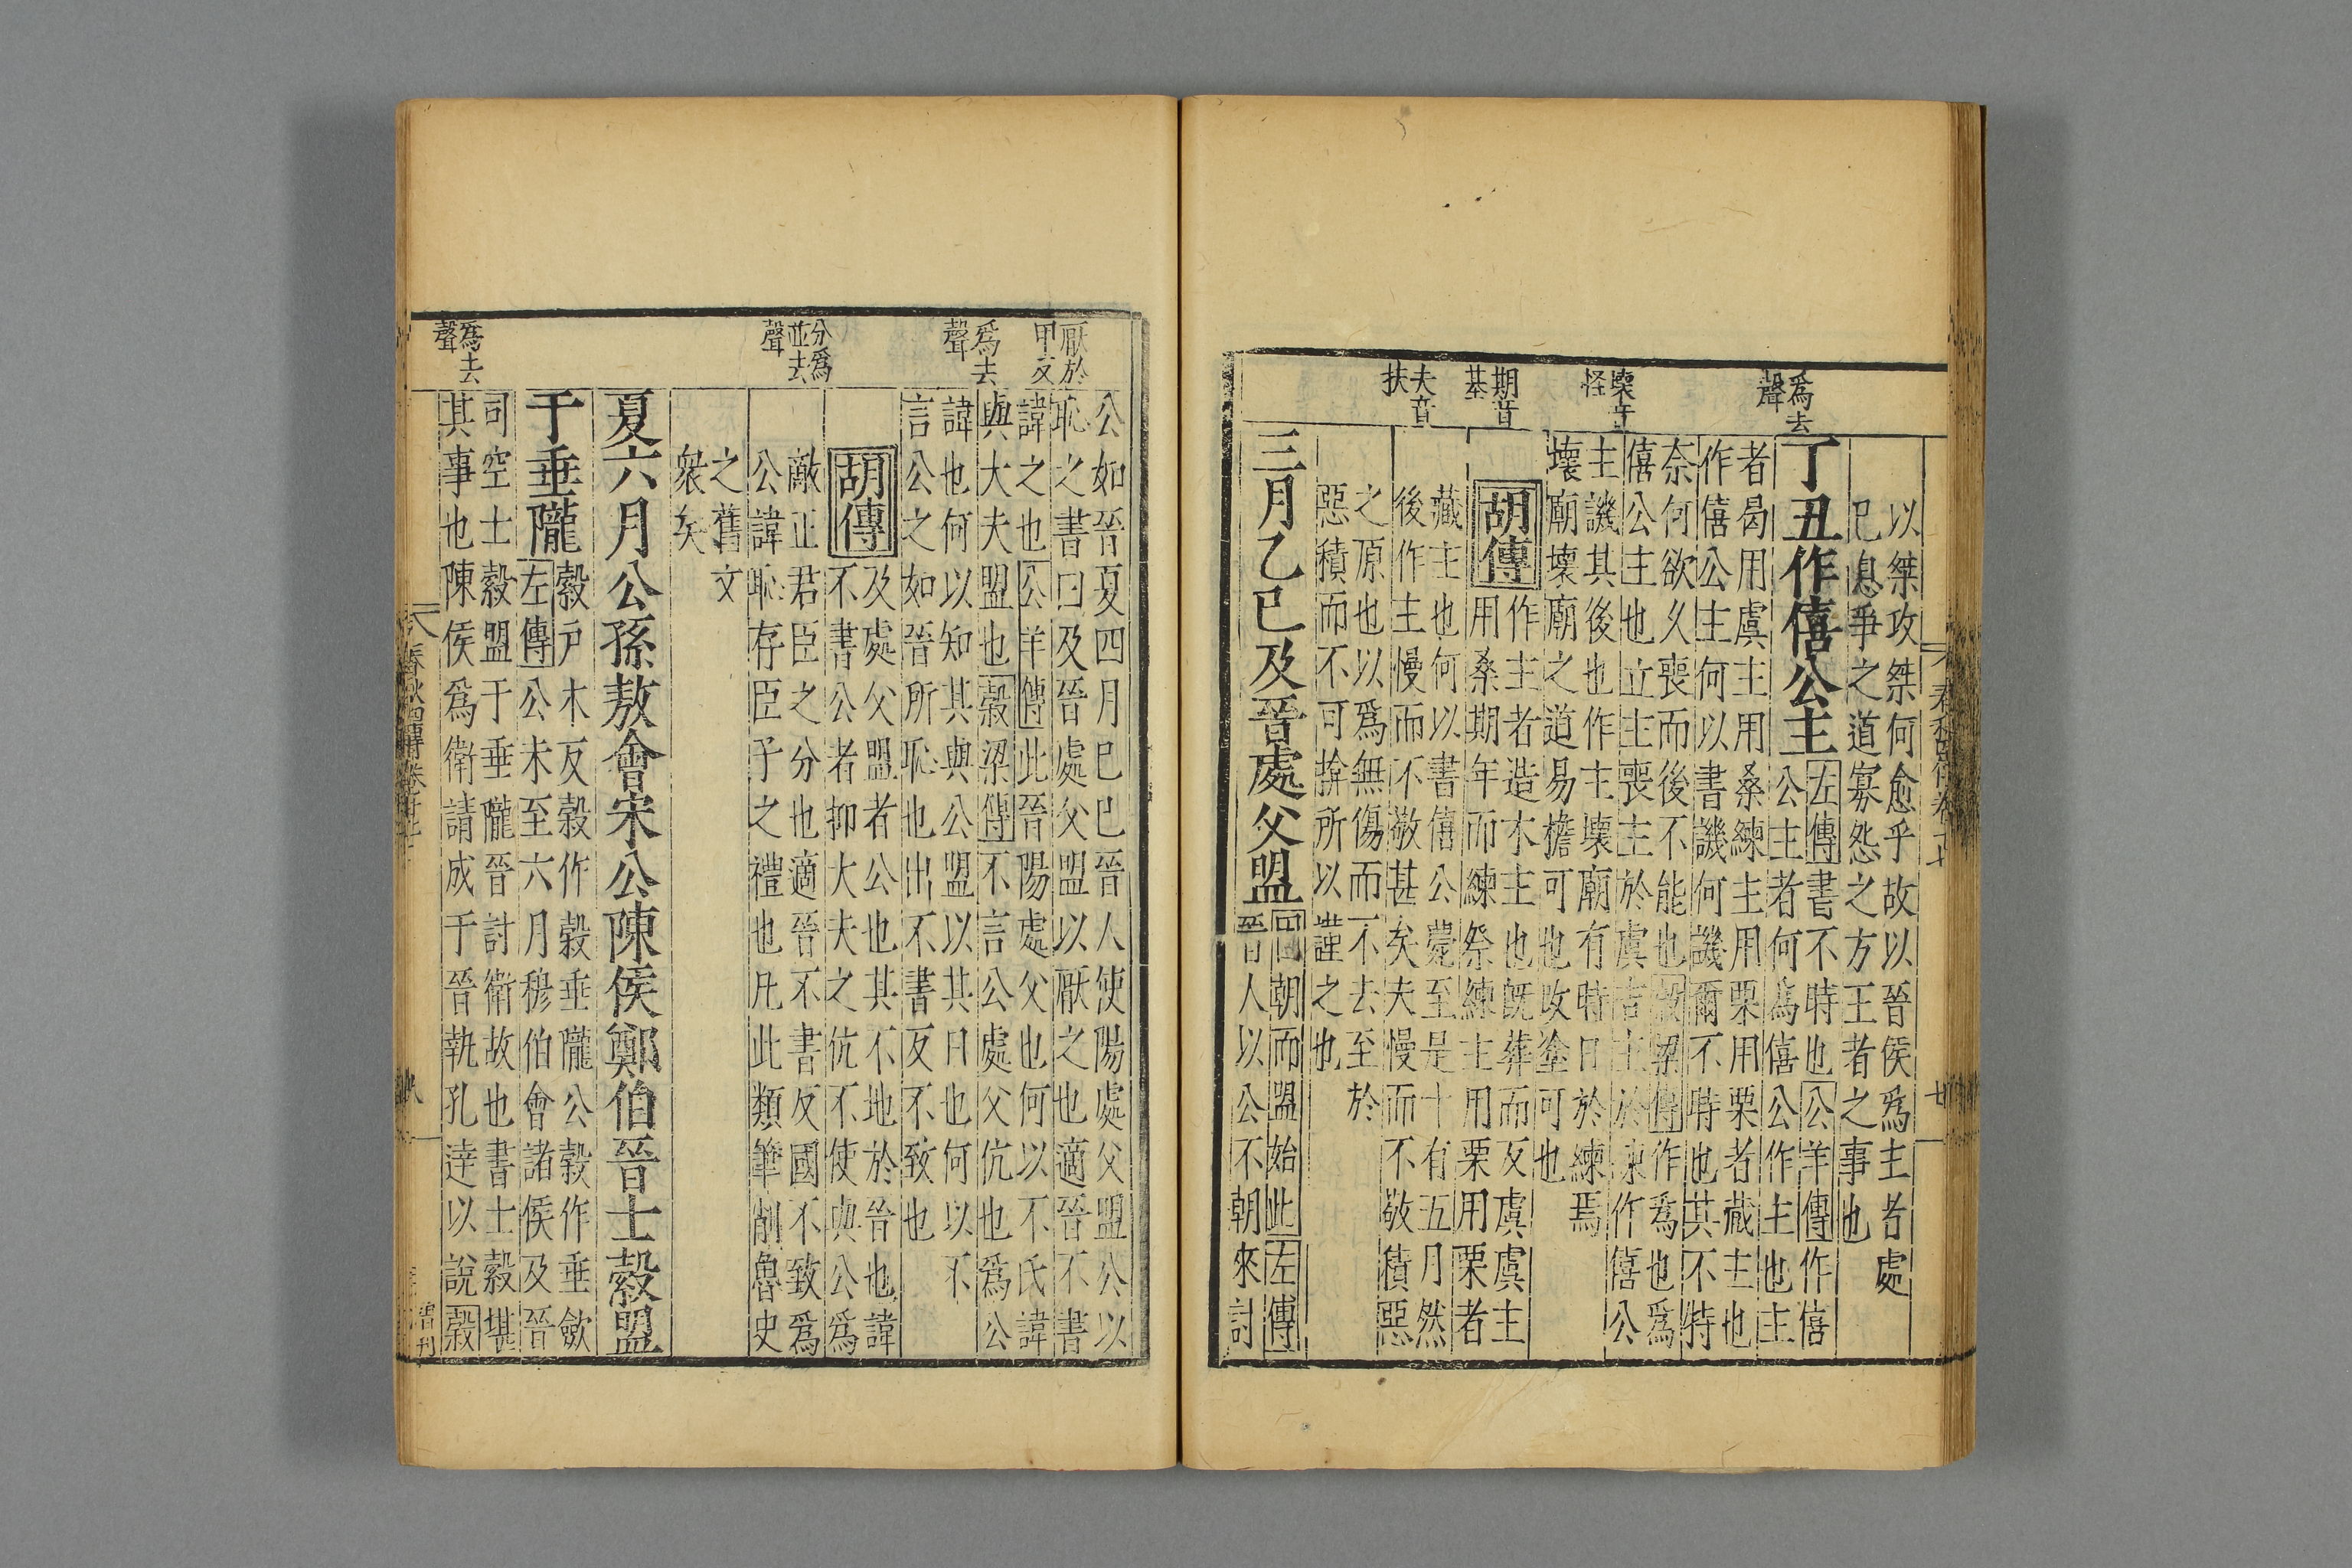 爲去
聲
壞音
怪
期音
基
夫音
扶
以桀攻桀何愈乎故以晉侯爲主者處
已息爭之道寡怨之方王者之事也
丁丑作僖公主
左傳書不時也公羊傳作僖
公主者何爲僖公作主也主
者曷用虞主用桑練主用栗用栗者藏主也
作僖公主何以書譏何譏爾不時也其不時
奈何欲久喪而後不能也穀梁傳作爲也爲
僖公主也立主喪主於虞吉主於練作僖公
主譏其後也作主壞廟有時日於練焉
壞廟壞廟之道易檐可也改塗可也
胡傳
作主者造木主也既葬而反虞虞主
用桑期年而練祭練主用栗用栗者
藏主也何以書僖公薨至是十有五月然
後作主慢而不敬甚矣夫慢而不敬積惡
之原也以爲無傷而不去至於
惡積而不可揜所以謹之也
三月乙巳及晉處父盟
朝而盟始此左傳
晉人以公不朝來討
厭於
甲反
爲去
聲
分爲
並去
聲
爲去
聲
公如晉夏四月己巳晉人使陽處父盟公以
恥之書曰及晉處父盟以厭之也適晉不書
諱之也公羊傳此晉陽處父也何以不氏諱
與大夫盟也穀梁傳不言公處父伉也爲公
諱也何以知其與公盟以其日也何以不
言公之如晉所恥也出不書反不致也
胡傳
及處父盟者公也其不地於晉也諱
不書公者抑大夫之伉不使與公爲
敵正君臣之分也適晉不書反國不致爲
公諱恥存臣子之禮也凡此類筆削魯史
之舊文
衆矣
夏六月公孫敖會宋公陳侯鄭伯晉士縠盟
于垂隴
縠戶木反穀作穀垂隴公穀作垂斂
左傳公未至六月穆伯會諸侯及晉
司空士縠盟于垂隴晉討衛故也書士縠堪
其事也陳侯爲衛請成于晉執孔達以說穀
春秋四傳卷十七